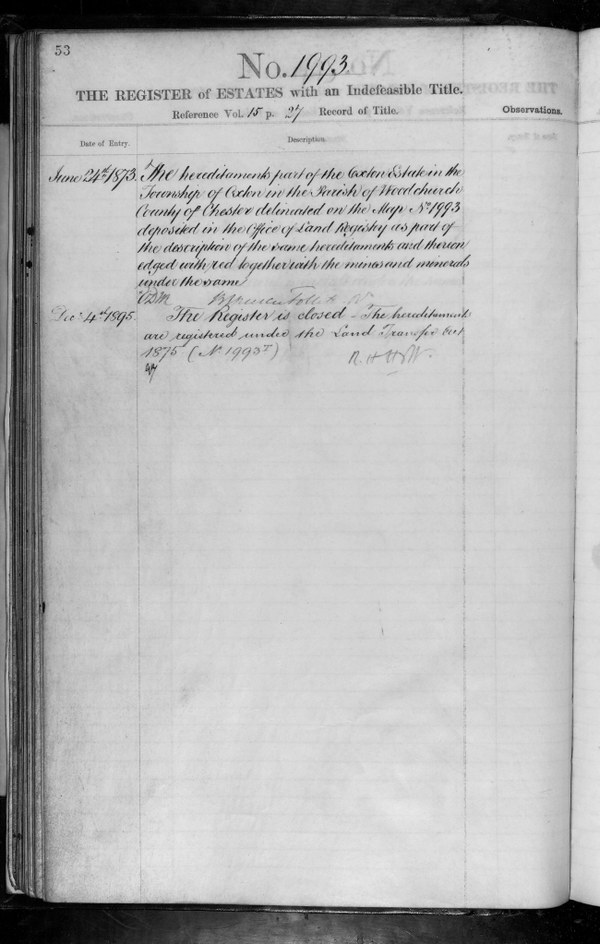 53
No. 1993.
THE REGISTER of ESTATES with an Indefeasible Title.
Reference Vol. 15 p. 27 Record of Title.
Observations.
Date of Entry.
Description.
June 24th 1873. The hereditaments part of the Oxton Estate in the
Township of Oxton in the Parish of Woodchurch
County of Chester delineated on the Map No. 1993
deposited in the Office of Land Registry as part of
the description of the same hereditaments and thereon
edged with red together with the mines and minerals
under the same
Decr. 4th 1895. The Register is closed - The hereditaments
are registered under the Land Transfer Act
1875 (No 1993T)